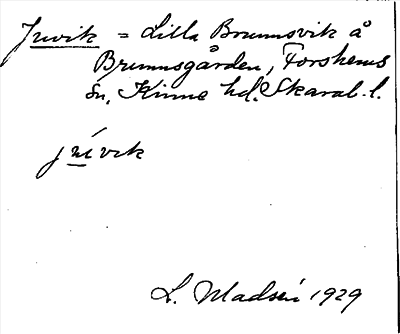 Juvik = Lilla Brunnsvik å
Brunnsgården, Forshems
sn, Kinne hd. Skarab. l.
júvik
L. Madsén 1929